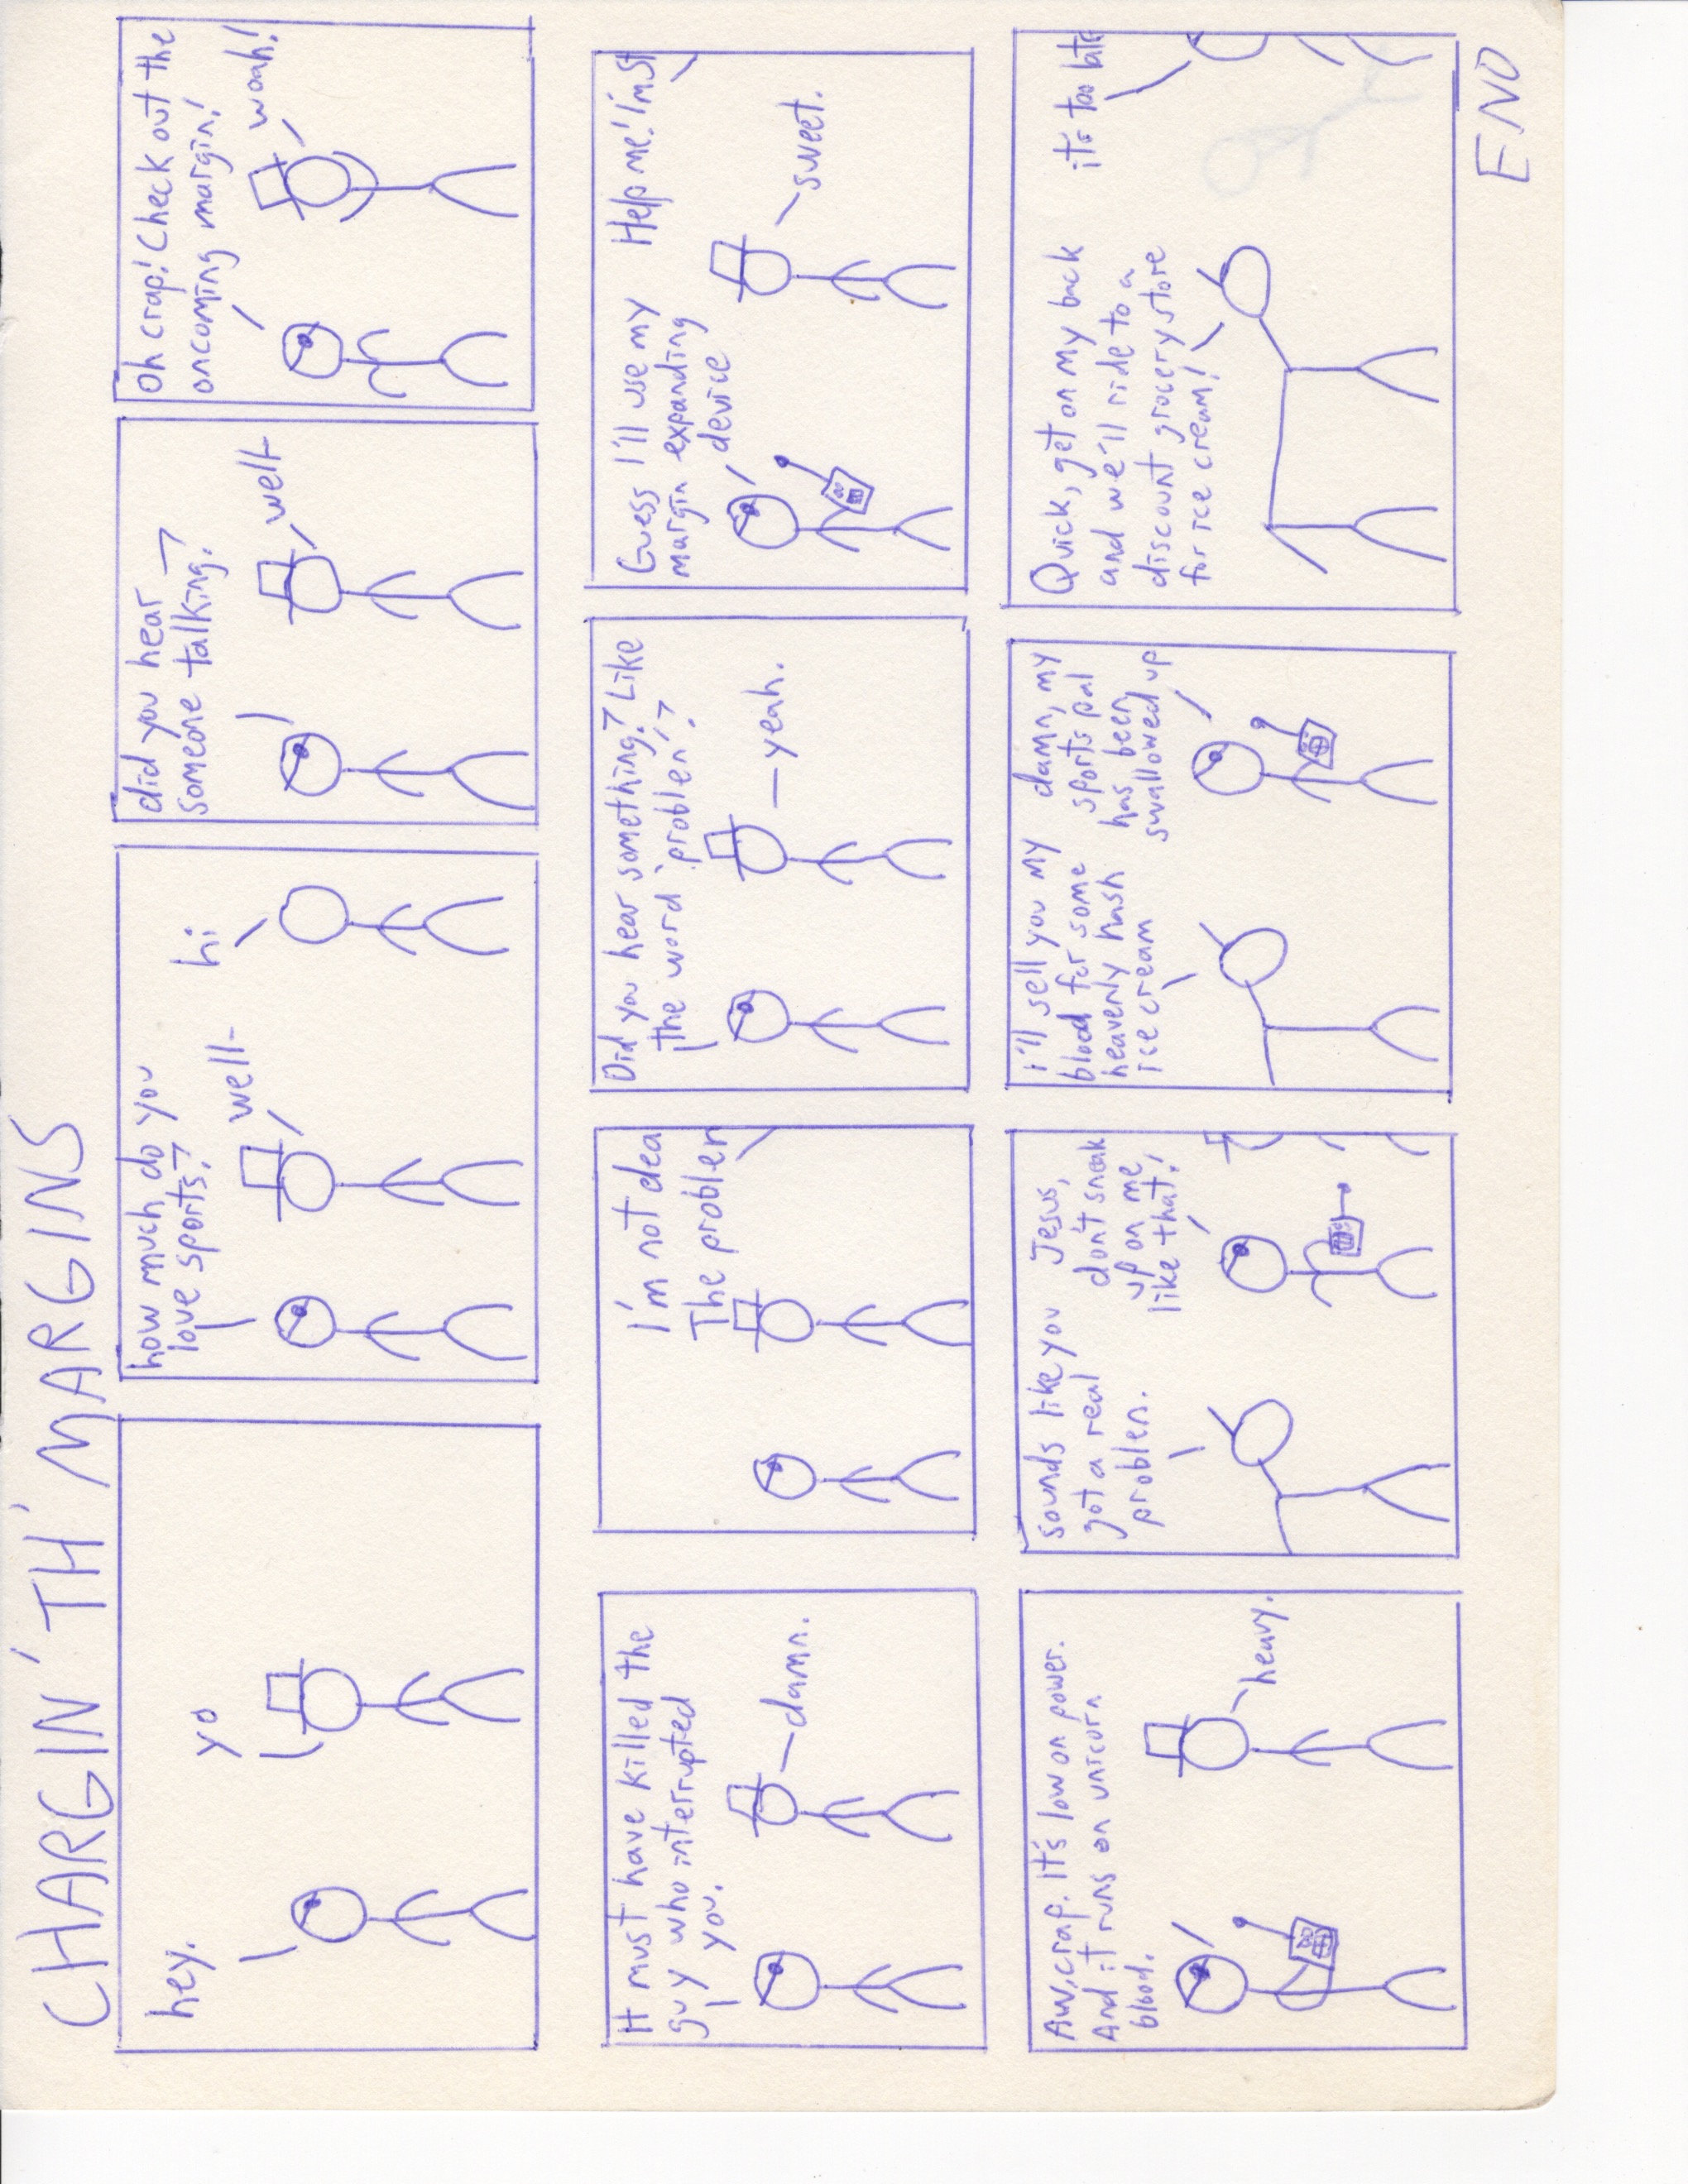 CHARGIN' TH' MARGINS
hey.
yo
how much do you
love sports?
well-
hi
did you hear
someone talking?
well-
Oh crap! Check out the
oncoming margin!
woah!
It must have killed the
guy who interrupted
you.
damn.
I'm not dea
The problem
Did you hear something? Like
the word 'problem'?
yeah.
Guess I'll use my
margin expanding
device
Help me! I'm st
sweet.
Aw, crap. It's low on power.
And it runs on unicorn
blood.
heavy.
sounds like you
got a real
problem.
Jesus,
don't sneak
up on me
like that!
i'll sell you my
blood for some
heavenly hash
ice cream
damn, my
sports pal
has been
swallowed up
Quick, get on my back
and we'll ride to a
discount grocery store
for ice cream!
it's too late
END